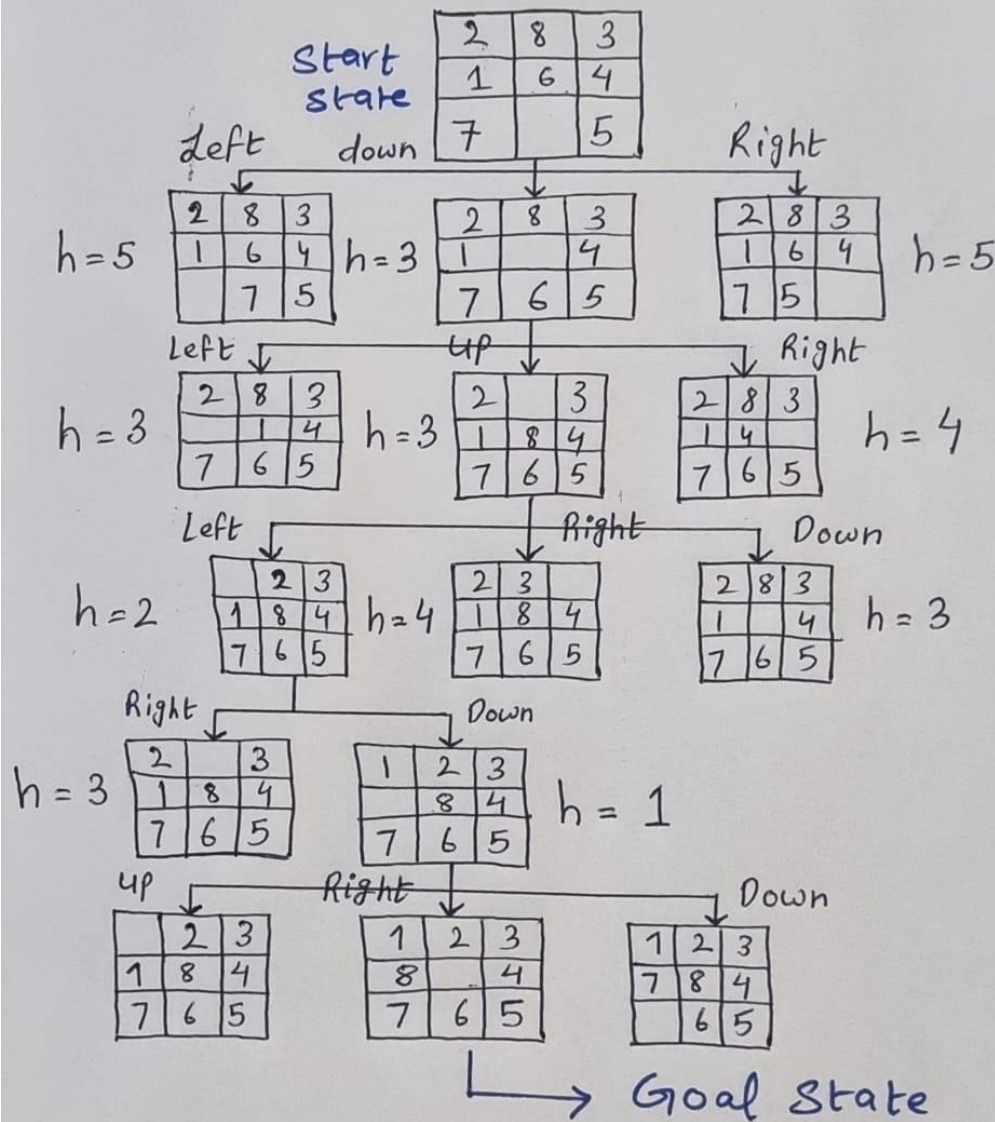 2 8 3
Start
state
1 6 4
7 5
Left down Right
h = 5
2 8 3
1 6 4
7 5
h = 3
2 8 3
1 4
7 6 5
2 8 3
1 6 4
7 5
h = 5
Left up Right
h = 3
2 8 3
1 4
7 6 5
h = 3
2 3
1 8 4
7 6 5
2 8 3
1 4
7 6 5
h = 4
Left Right Down
h = 2
2 3
1 8 4
7 6 5
h = 4
2 3
1 8 4
7 6 5
2 8 3
1 4
7 6 5
h = 3
Right Down
h = 3
2 3
1 8 4
7 6 5
1 2 3
8 4
7 6 5
h = 1
up Right Down
2 3
1 8 4
7 6 5
1 2 3
8 4
7 6 5
1 2 3
7 8 4
6 5
Goal State